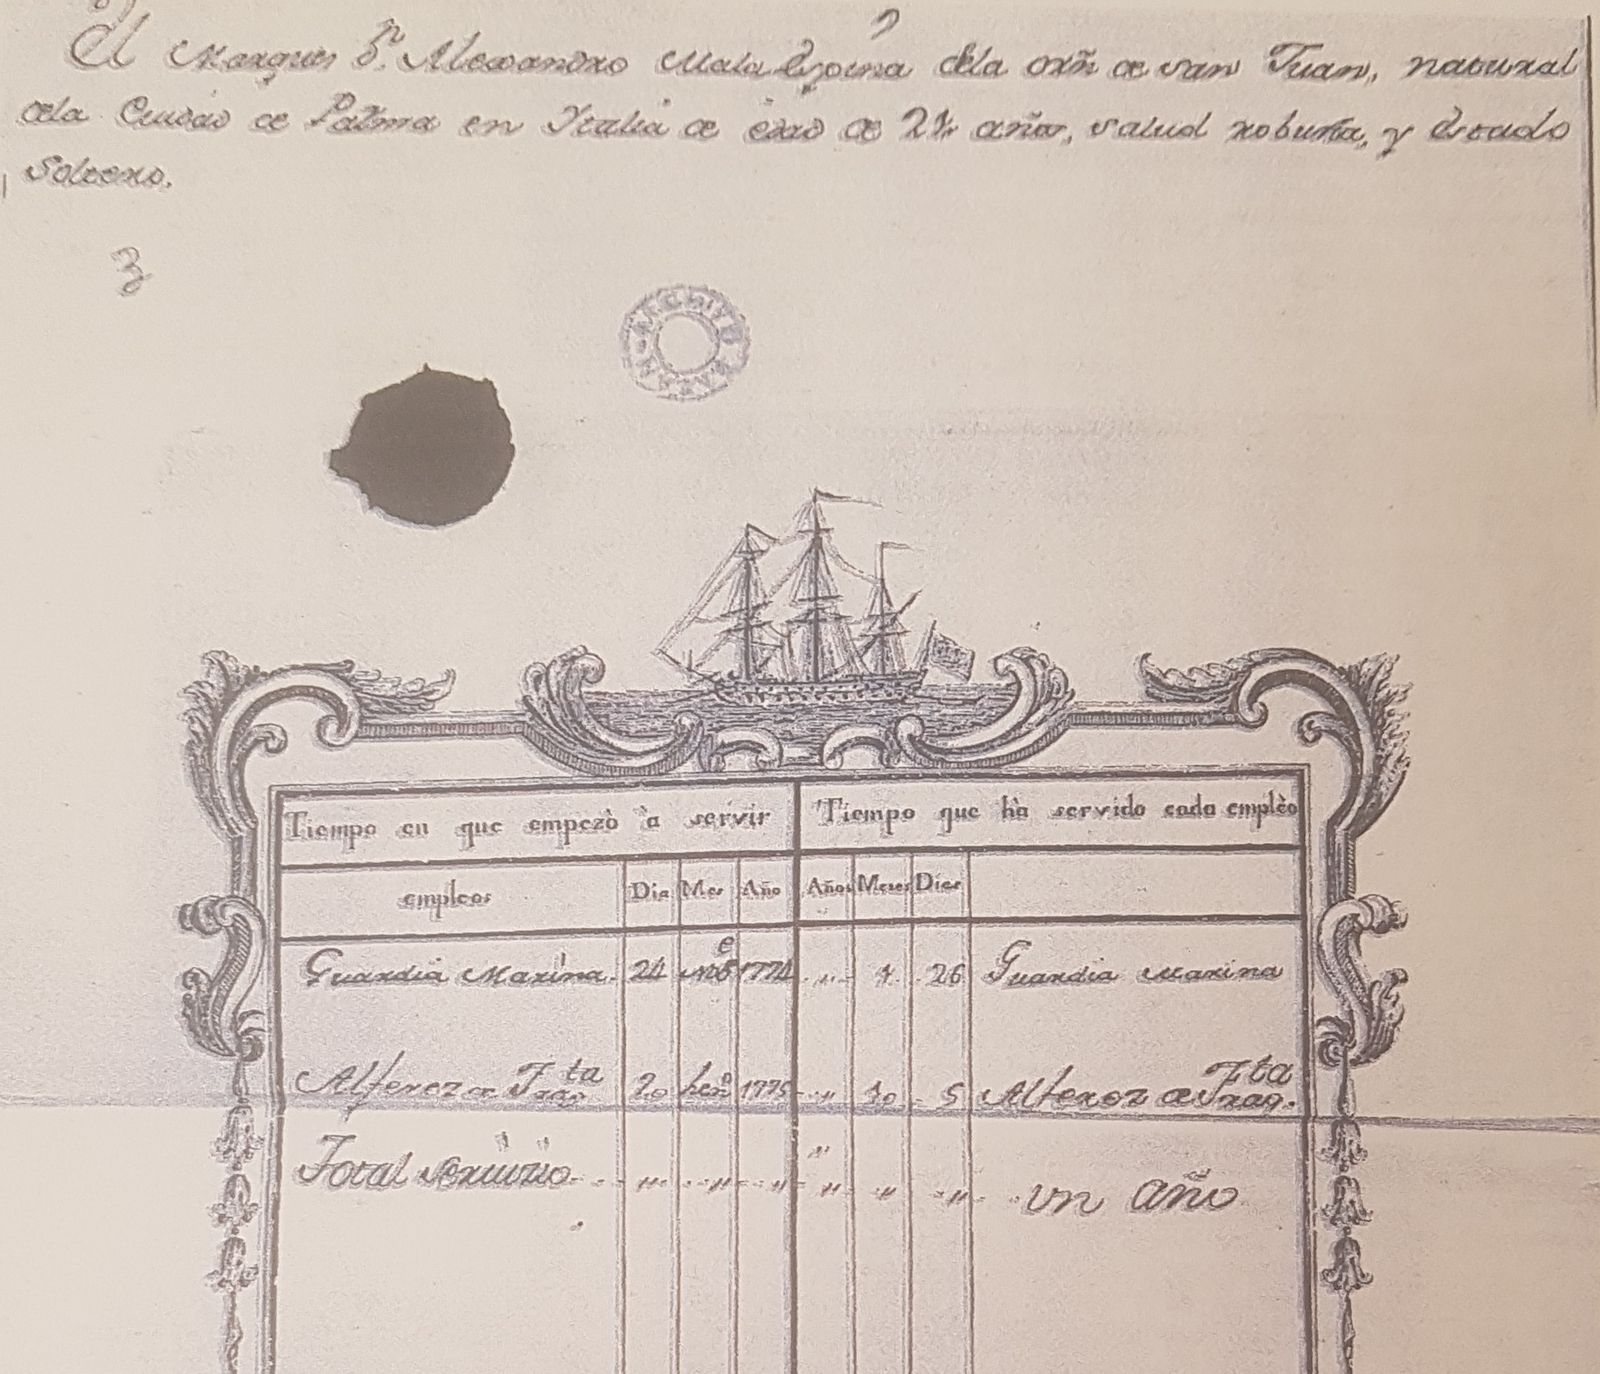 El Marques Dn. Alexandro Mala Espina dela orñ de San Juan, natural
dela Ciudad de Palma en Italia de edad de 21 años, salud robusta, y Estado
Soltero.
3
ARCHIVO
Tiempo en que empezò à servir Tiempo que hà servido cada emplèo
empleos Dia Mes Año Años Meses Dias
Guardia Marina. 24 Nore 1774 " 1 26 Guardia Marina
Alferez de Fragta 20 Heno 1775 " 10 5 Alferez de Fragta.
Total Servizio " " " " " " un año